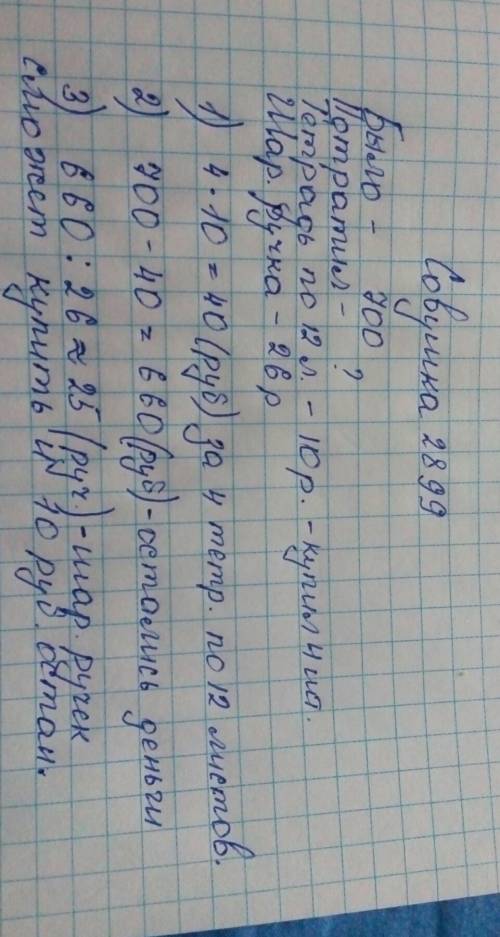 Совушка 2899
Было - 700
Потратил - ?
Тетрадь по 12 л. - 10 р. - купил 4 шт.
Шар. ручка - 26 р
1) 4 · 10 = 40 (руб) за 4 тетр. по 12 листов.
2) 700 - 40 = 660 (руб) - остались деньги
3) 660 : 26 ≈ 25 (руч.) - шар. ручек
сможет купить и 10 руб. остан.